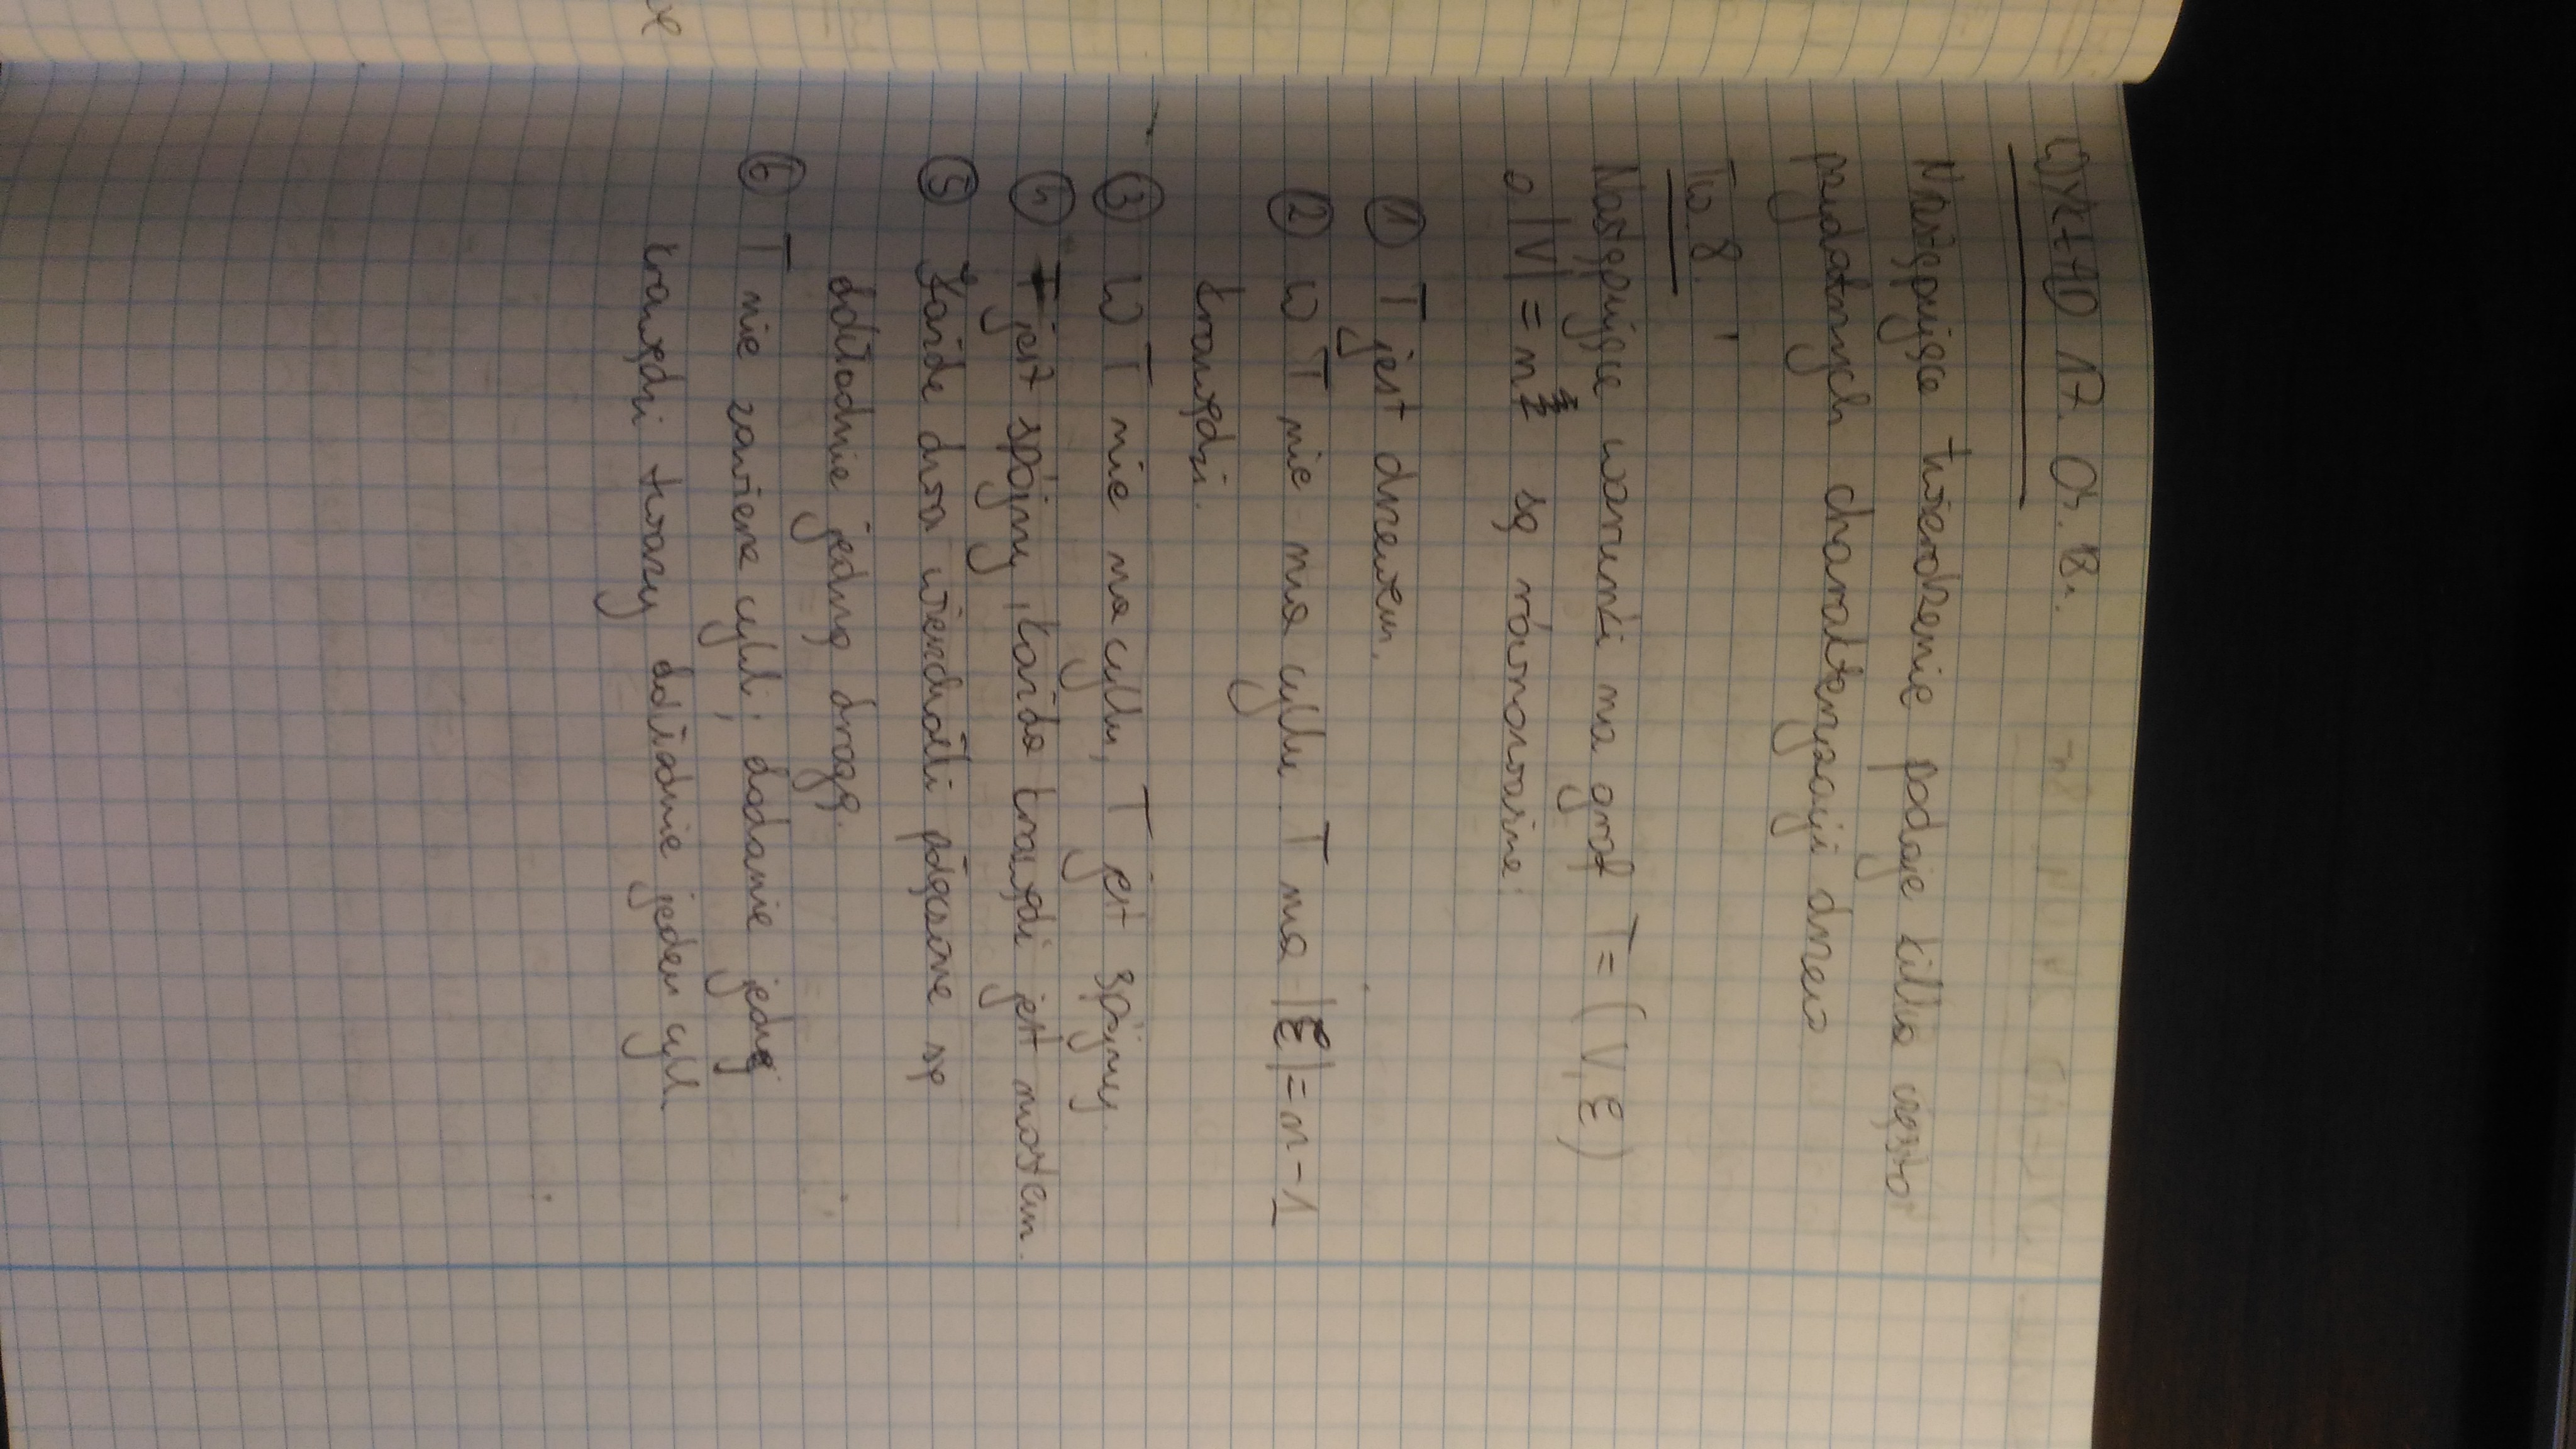 WYKŁAD 17. 03. 18r.
Następujące twierdzenie podaje kilka często
przydatnych charakteryzacji drzew
Tw. 8.
Następujące warunki na graf T = (V, ℰ)
o |V| = n są równoważne:
① T jest drzewem.
② W T nie ma cyklu. T ma |ℰ| = n - 1
krawędzi.
③ W T nie ma cyklu, T jest spójny.
④ T jest spójny, każda krawędź jest mostem.
⑤ Każde dwa wierzchołki połączone są
dokładnie jedną drogą.
⑥ T nie zawiera cykli; dodanie jednej
krawędzi tworzy dokładnie jeden cykl.